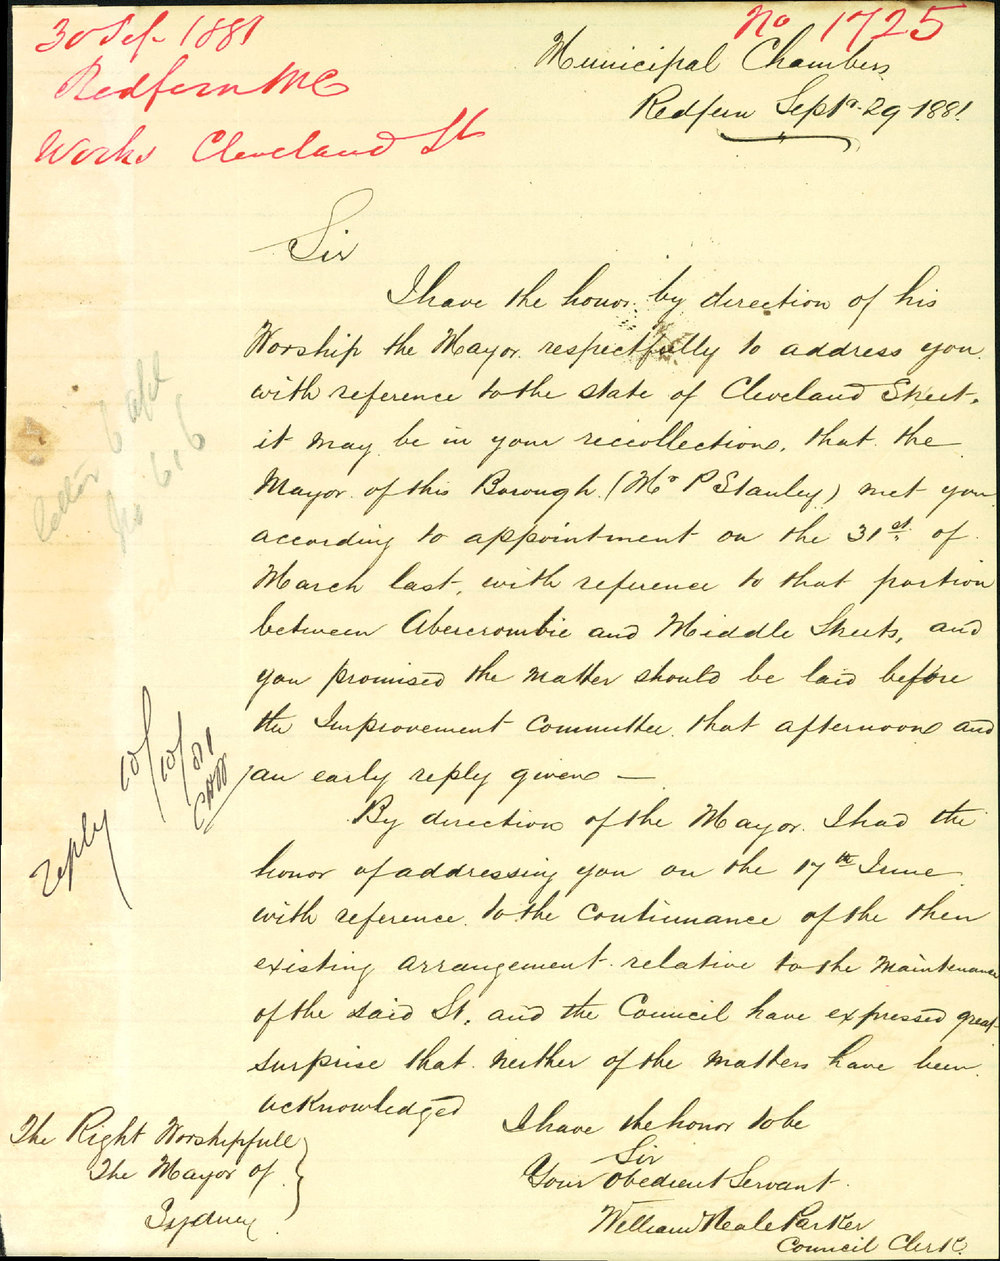 30 Sep 1881
Redfern MC
Works Cleveland St
No 1725
Municipal Chambers
Redfern Sept. 29 1881
Sir
I have the honor by direction of his
Worship the Mayor respectfully to address you
with reference to the state of Cleveland Street,
it may be in your reccollection, that the
Mayor of this Borough (Mr P Stanley) met you
according to appointment on the 31st of
March last, with reference to that portion
between Abercrombie and Middle Streets, and
you promised the matter should be laid before
the Improvement Committee that afternoon and
an early reply given —
By direction of the Mayor I had the
honor of addressing you on the 17th June
with reference to the continuance of the then
existing arrangement relative to the maintenance
of the said St, and the Council have expressed great
surprise that neither of the matters have been
acknowledged
I have the honor to be
Sir
Your Obedient Servant
William Neale Parker
Council Clerk
The Right Worshipfull
The Mayor of
Sydney
letter 6
No 616
reply 10/10/81